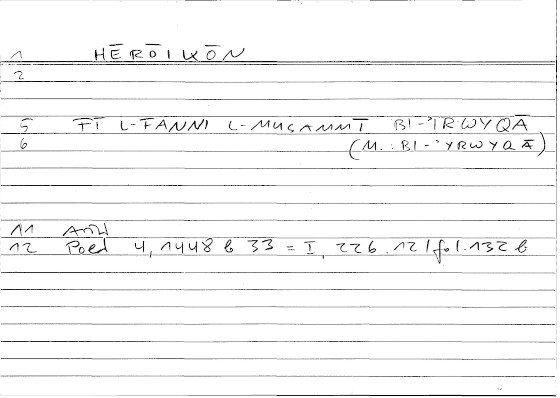 1 HĒRŌIKŌN
2
5 FĪ L-FANNI L-MUSAMMĪ BI-'IRWYQĀ
6 (M.: BI-'YRWYQĀ)
11 Arist
12 Poed 4, 1448 b 33 = I, 226.12 / fol. 132 b